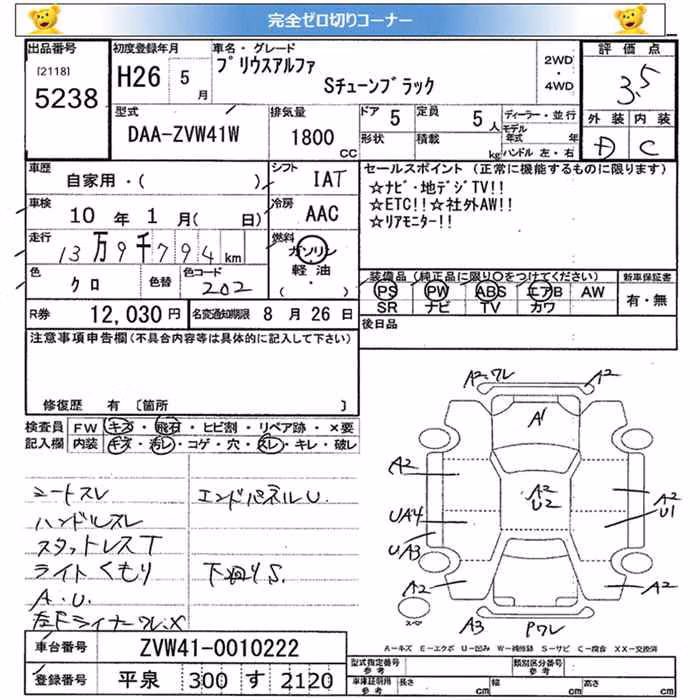 完全ゼロ切りコーナー
出品番号 初度登録年月 車名・グレード 評価点
[2118] 5238
H26 5 月
プリウスアルファ
Sチューンブラック
2WD・4WD
3.5
型式 排気量 ドア 5 定員 5 人 ディーラー・並行
DAA-ZVW41W 1800 CC
形状 積載 kg モデル年式 年
ハンドル 左・右
外装 内装
D C
車歴 自家用・( ) シフト IAT
車検 10 年 1 月( 日) 冷房 AAC
走行 13万9千794 km 燃料 ガソリン
軽油
( ・ )
色 クロ 色替 色コード 202
R券 12,030 円 名変通知期限 8 月 26 日
セールスポイント (正常に機能するものに限ります)
☆ナビ・地デジTV!!
☆ETC!!☆社外AW!!
☆リアモニター!!
装備品 (純正品に限り○をつけてください) 新車保証書
PS PW ABS エアB AW 有・無
SR ナビ TV カワ
後日品
注意事項申告欄(不具合内容等は具体的に記入して下さい)
修復歴 有 〔箇所 〕
検査員 FW キズ・飛石・ヒビ割・リペア跡・×要
記入欄 内装 キズ・汚レ・コゲ・穴・スレ・キレ・破レ
シートスレ エンドパネルU.
ハンドルスレ
スタットレスT
ライトくもり 下廻りS.
A.U.
左Fライナーワレ.X
A2.ワレ A2
A1
A2 A2 U2 A2 U1
UA4
UA3
A2 A2
スペア A3 Pワレ
A-キズ E-エクボ U-凹み W-補修跡 S-サビ C-腐食 XX-交換済
車台番号 ZVW41-0010222
登録番号 平泉 300 す 2120
型式指定番号 参考 類別区分番号 参考
車庫証明用 参考 長さ cm 幅 cm 高さ cm